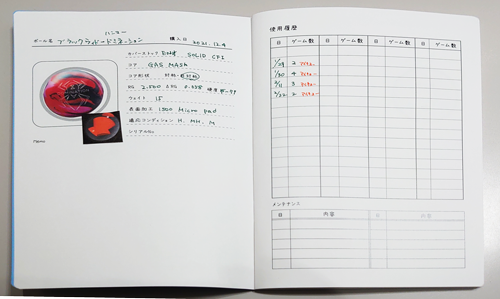 ハンマー
ボール名 ブラックウィドードミネーション 購入日 2021.12.4
カバーストック SOLID CFI
コア GAS MASK
コア形状 対称・非対称
RG 2.500 ΔRG 0.058
ウェイト 15
表面加工 1500 Micro pad
適応コンディション H. MH. M
シリアルNo.
Memo
使用履歴
日 ゲーム数 日 ゲーム数 日 ゲーム数 日 ゲーム数
1/29 2
1/30 4
2/11 3
2/22 2
メンテナンス
日 内容 日 内容